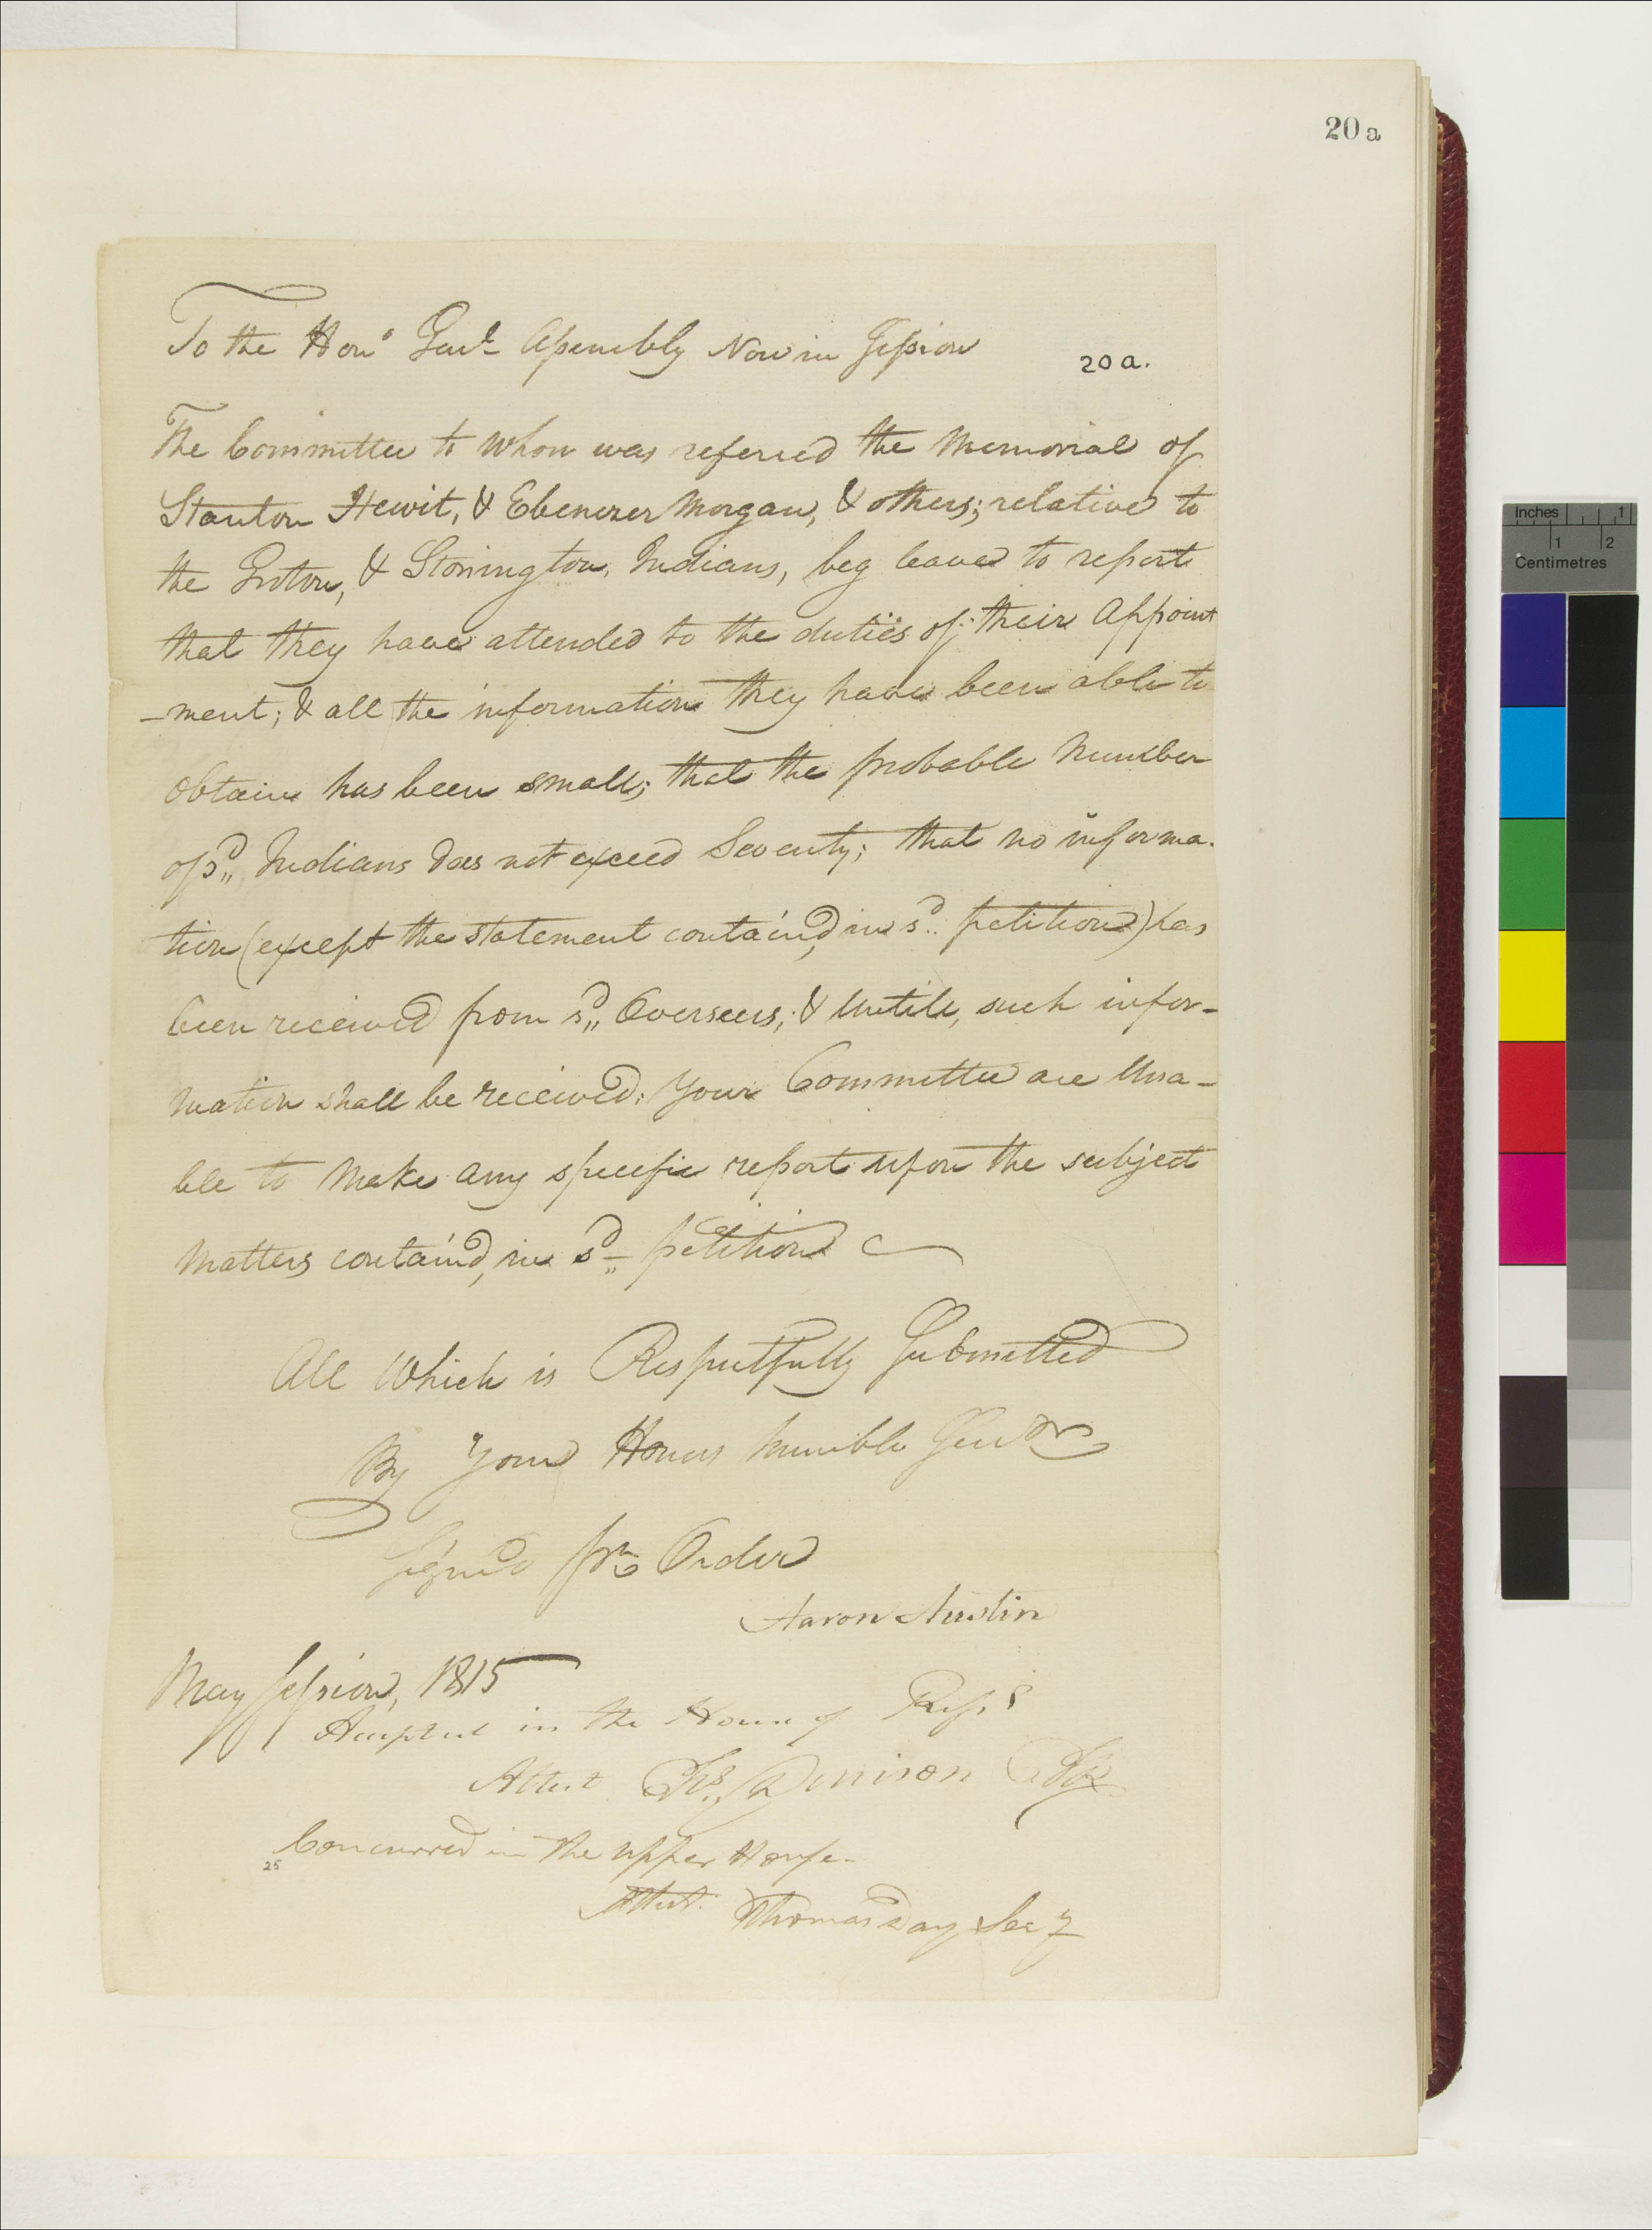 20 a
To the Hon.e Genl. Assembly Now in Session
20 a.
The Committee to Whom was referred the Memorial of
Stanton Hewit, & Ebenezer Morgan, & others; relative to
the Groton, & Stonington, Indians, beg leave to report
that they have attended to the duties of their Appoint
-ment; & all the information they have been able to
obtain has been small; that the probable Number
of sd,, Indians does not exceed Seventy; that no informa-
tion (except the statement contain'd, in sd.. petition) has
been received from sd,, Overseers; & Untill, such infor-
mation shall be received, Your Committee are Una-
ble to Make any specific report upon the subject
Matters contain'd, in sd petition
All Which is Respectfully Submitted
By Your Honors humble Servts
Sign'd pr Order
Aaron Austin
May Session, 1815
Accepted in the House of Reps
Attest Chs,, Denison Clk
Concurred in the upper House-
25
Attest. Thomas Day Secy
Inches 1
1 2
Centimetres